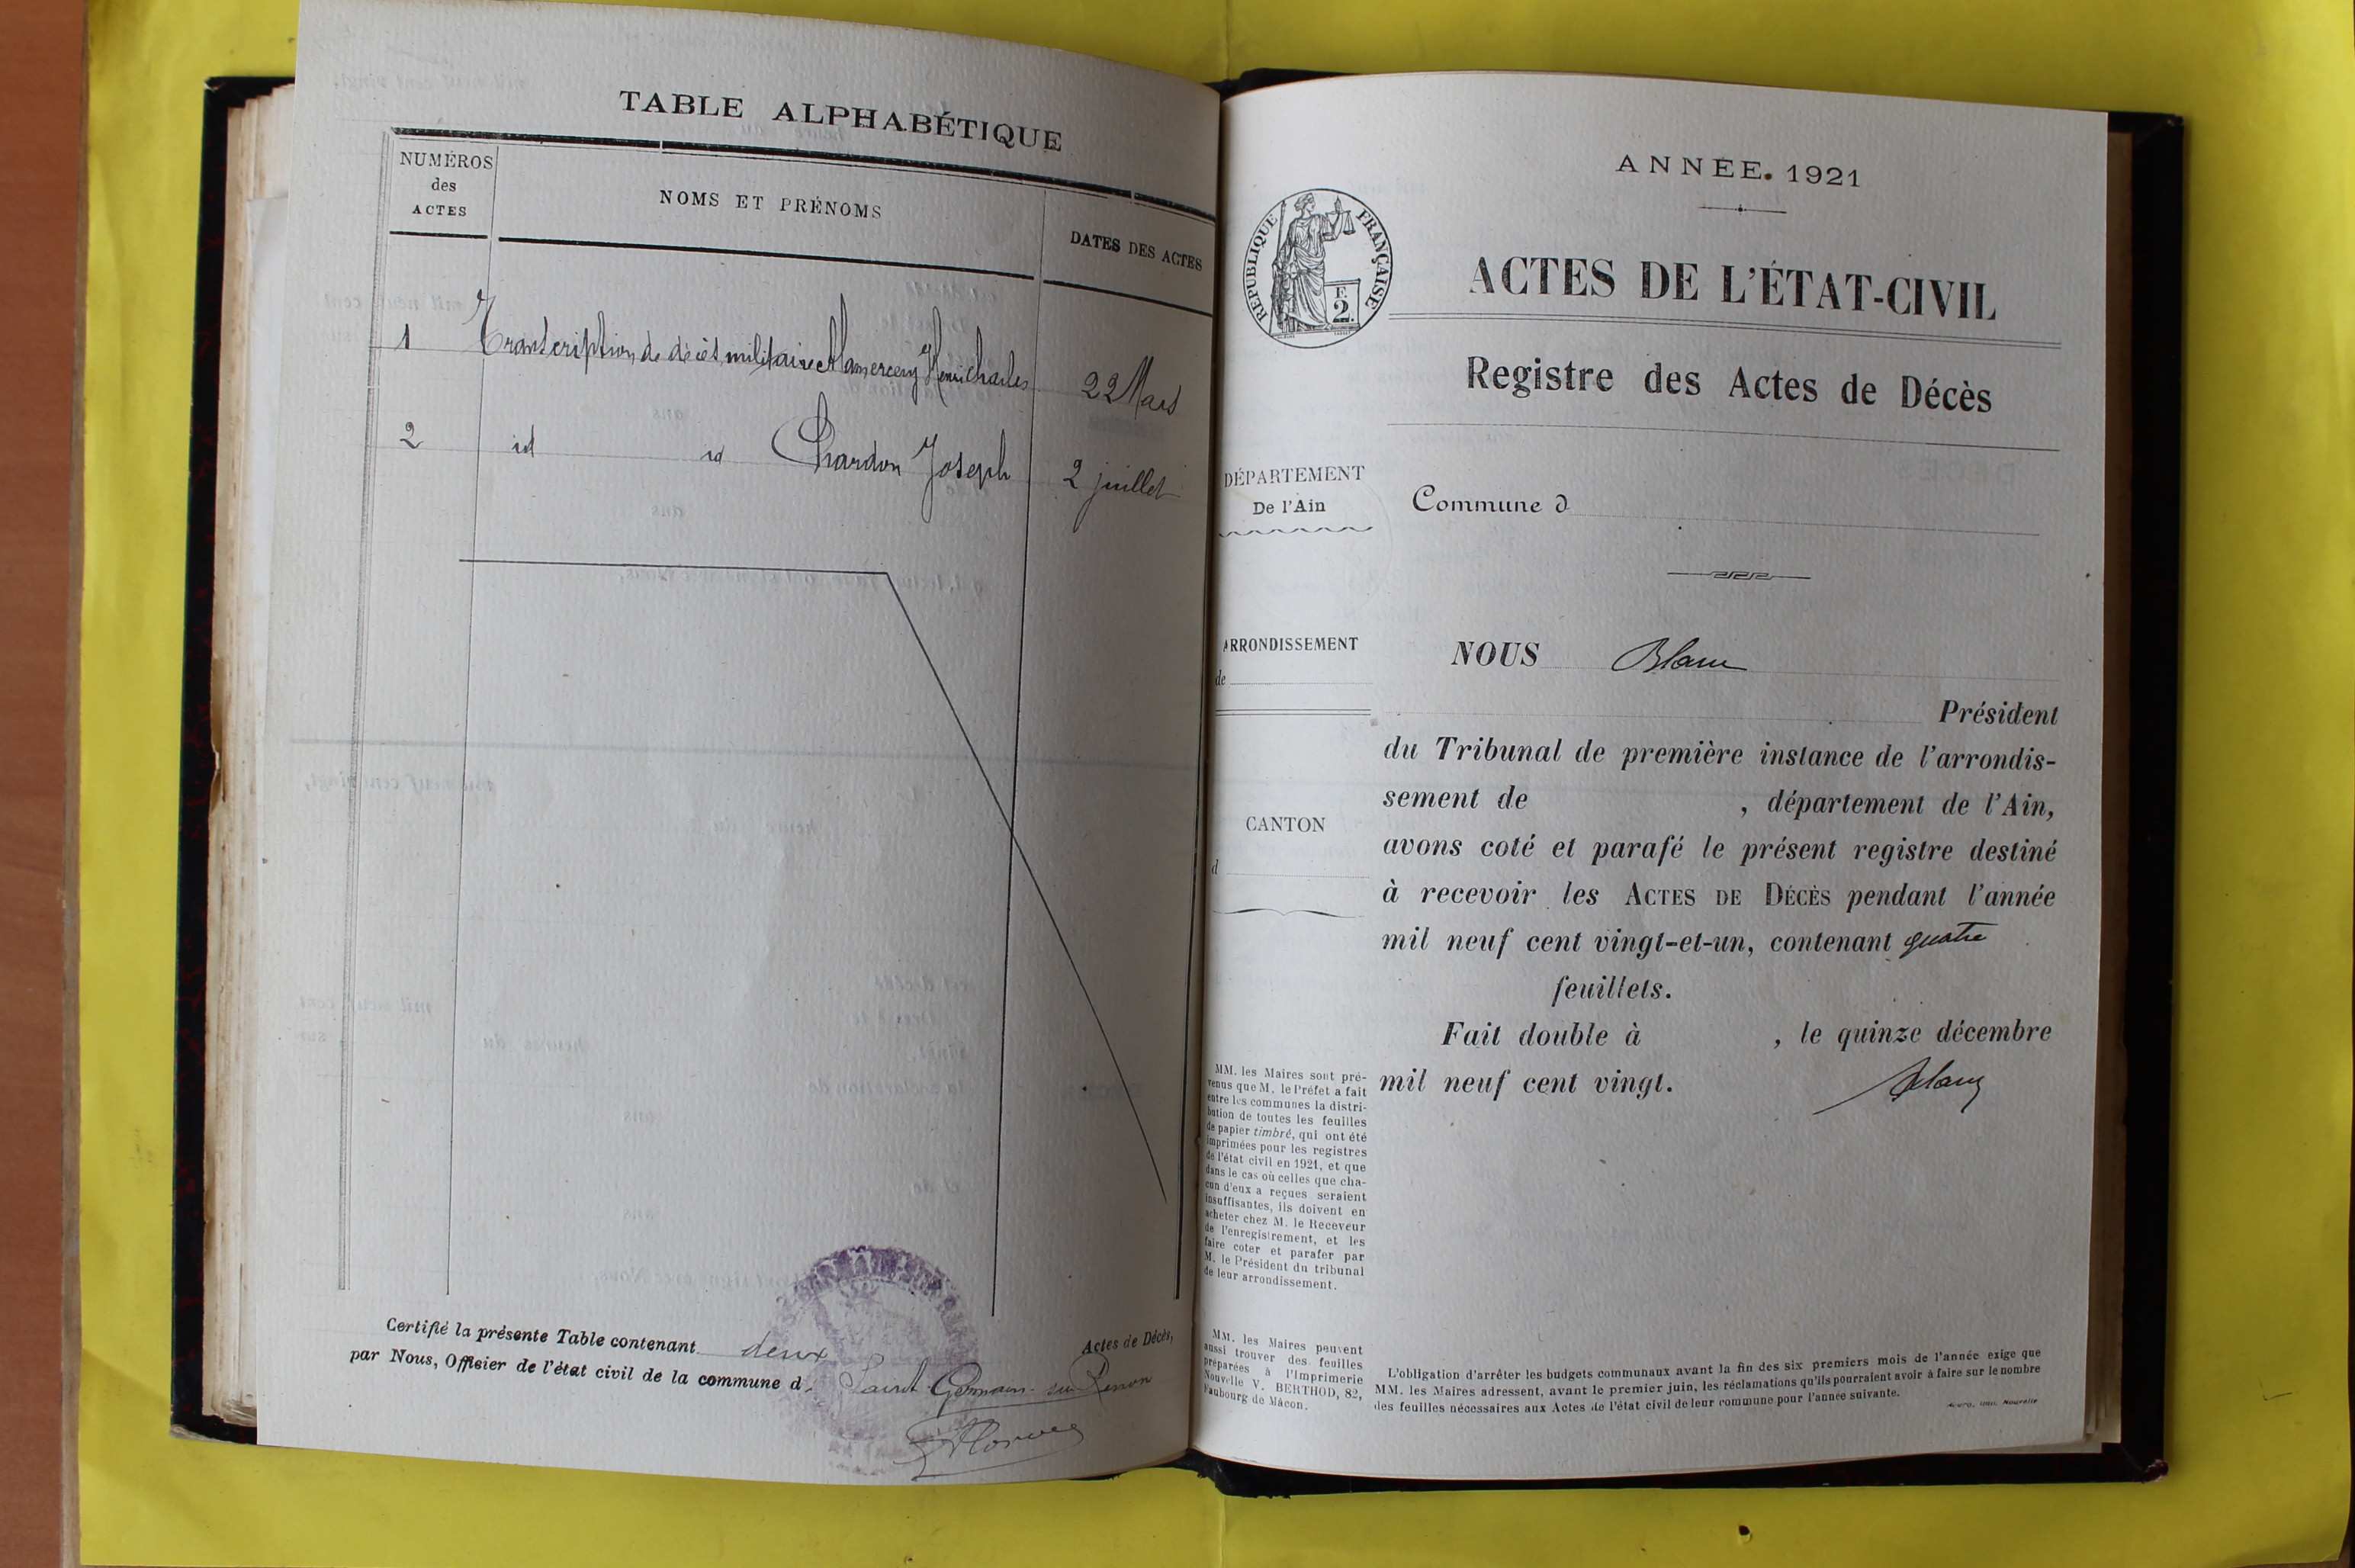 TABLE ALPHABÉTIQUE
NUMÉROS
des
ACTES
NOMS ET PRÉNOMS
DATES DES ACTES
1 Transcription de décès militaire Mamercery Henri Charles 22 Mars
2 id id Chardon Joseph 2 juillet
Certifié la présente Table contenant deux Actes de Décès,
par Nous, Officier de l'état civil de la commune d Saint-Germain-sur-Renon
ANNÉE. 1921
RÉPUBLIQUE FRANÇAISE
F.
2.
ACTES DE L'ÉTAT-CIVIL
Registre des Actes de Décès
DÉPARTEMENT
De l'Ain
Commune d
ARRONDISSEMENT
de
NOUS Blanc
Président
du Tribunal de première instance de l'arrondis-
sement de , département de l'Ain,
CANTON
d
avons coté et parafé le présent registre destiné
à recevoir les ACTES DE DÉCÈS pendant l'année
mil neuf cent vingt-et-un, contenant quatre
feuillets.
Fait double à , le quinze décembre
mil neuf cent vingt.
Blanc
MM. les Maires sont pré-
venus que M. le Préfet a fait
entre les communes la distri-
bution de toutes les feuilles
de papier timbré, qui ont été
imprimées pour les registres
de l'état civil en 1921, et que
dans le cas où celles que cha-
cun d'eux a reçues seraient
insuffisantes, ils doivent en
acheter chez M. le Receveur
de l'enregistrement, et les
faire coter et parafer par
M. le Président du tribunal
de leur arrondissement.
MM. les Maires peuvent
aussi trouver des feuilles
préparées à l'Imprimerie
Nouvelle V. BERTHOD, 82,
Faubourg de Mâcon.
L'obligation d'arrêter les budgets communaux avant la fin des six premiers mois de l'année exige que
MM. les Maires adressent, avant le premier juin, les réclamations qu'ils pourraient avoir à faire sur le nombre
des feuilles nécessaires aux Actes de l'état civil de leur commune pour l'année suivante.